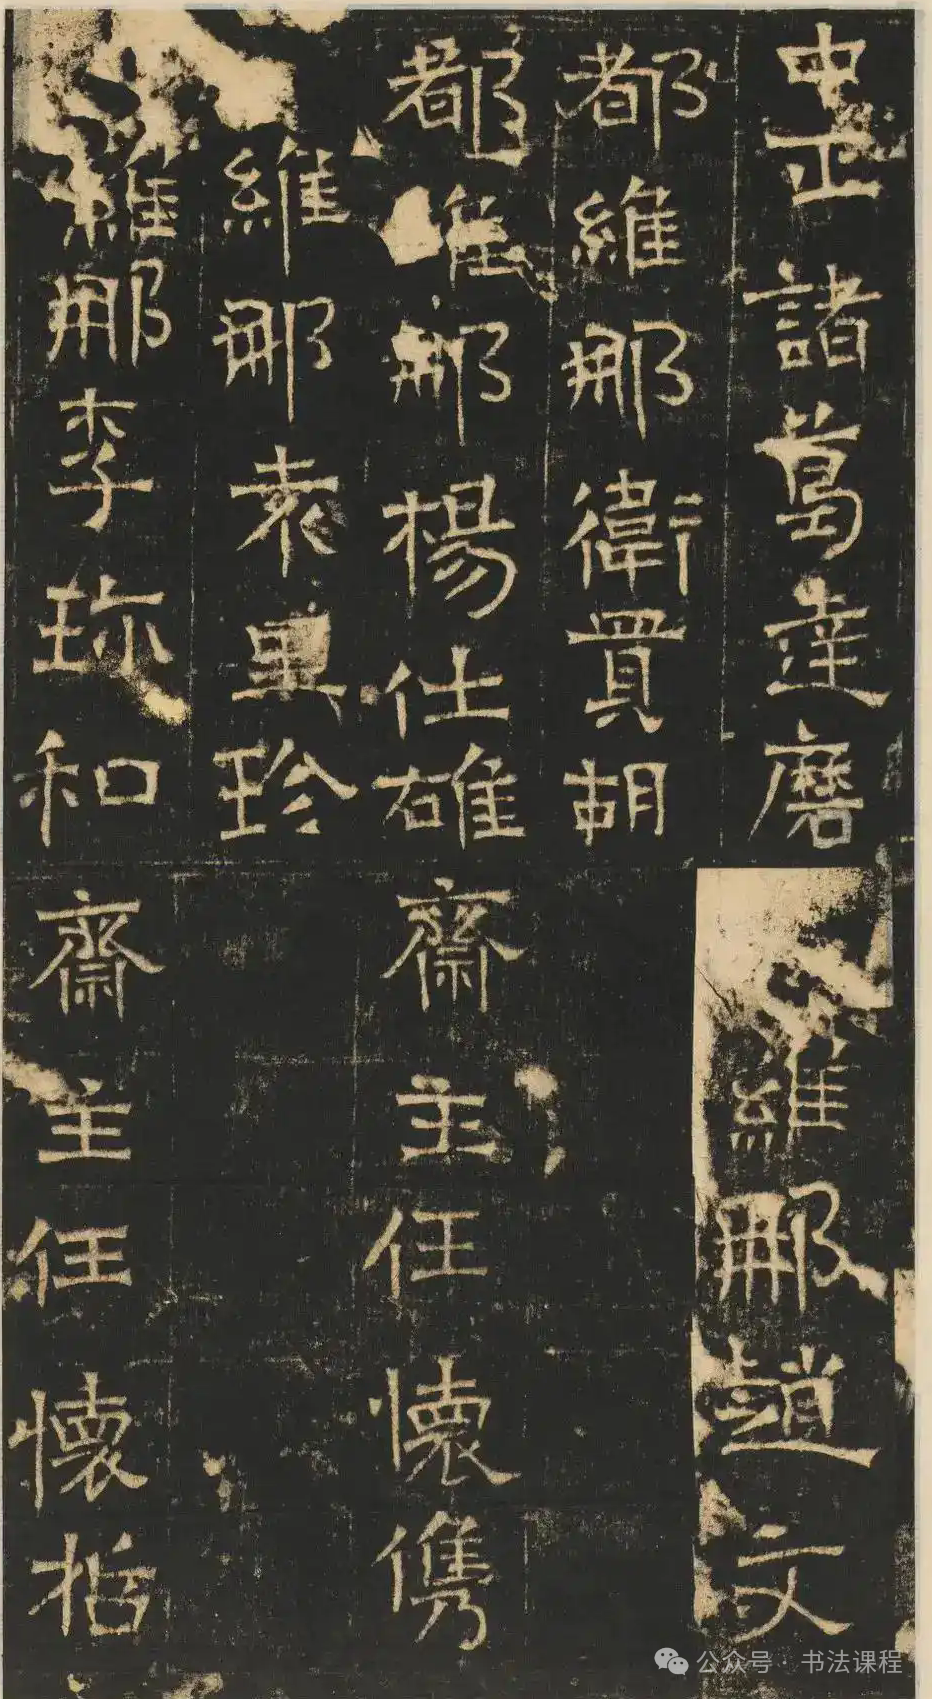 中正諸葛達磨
都維那衛買胡
都維那楊仕雄
維那袁珍
維那李珎和
維那趙文
齋主任懷儁
齋主任懷
公众号 · 书法课程